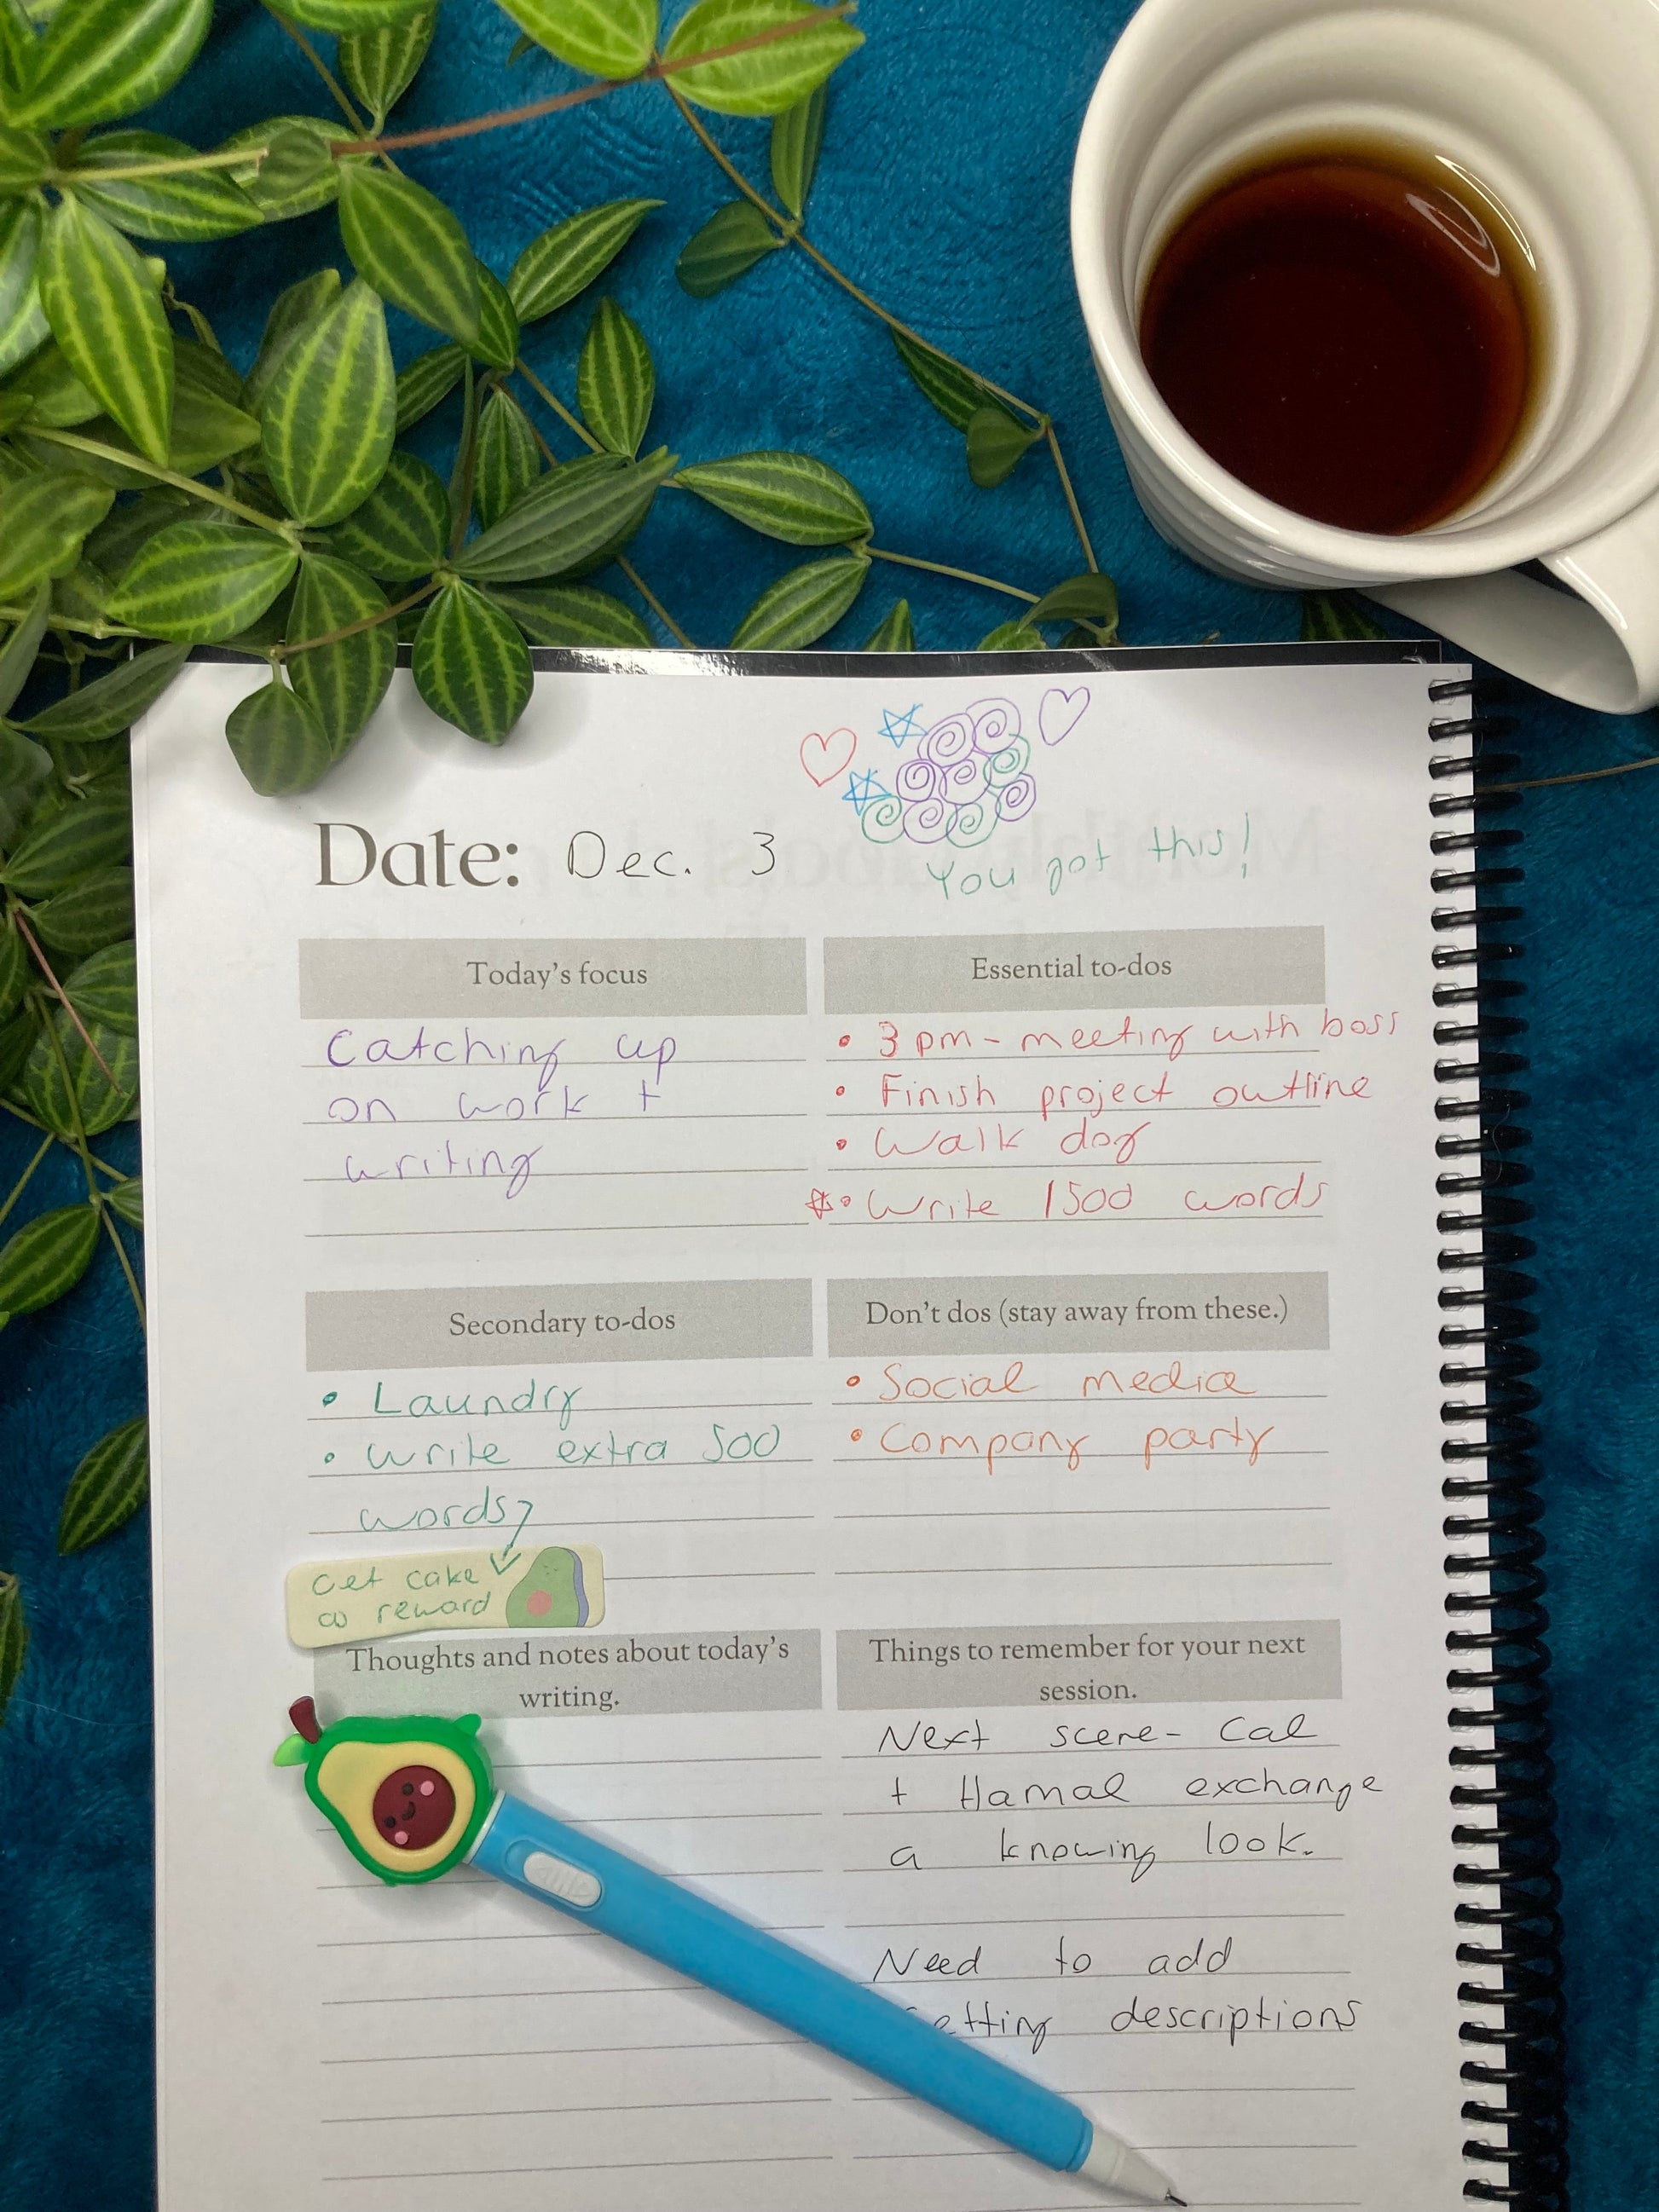 Date: Dec. 3
You got this!
Today's focus
Catching up
on work +
writing
Essential to-dos
• 3 pm - meeting with boss
• Finish project outline
• Walk dog
• Write 1500 words
Secondary to-dos
• Laundry
• Write extra 500
words
Get cake
as reward
Don't dos (stay away from these.)
• Social media
• Company party
Thoughts and notes about today's
writing.
Things to remember for your next
session.
Next scene - Cal
+ Hamal exchange
a knowing look.
Need to add
descriptions